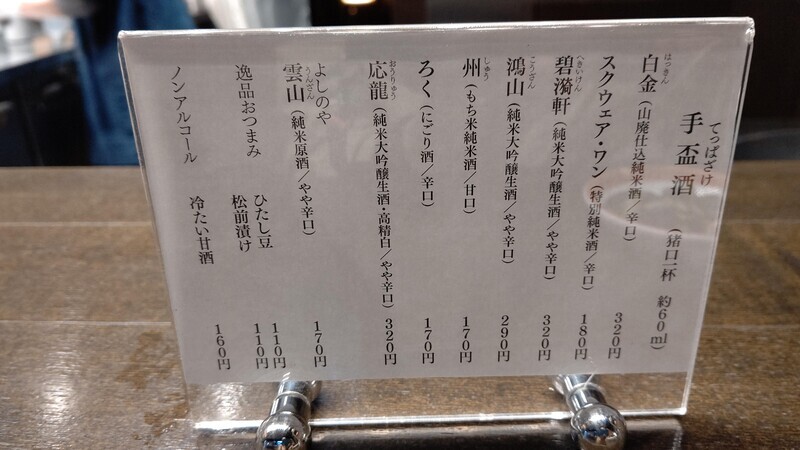 手盃酒 てっぱざけ (猪口一杯 約60ml)
白金 はっきん (山廃仕込純米酒/辛口) 320円
スクウェア・ワン (特別純米酒/辛口) 180円
碧漪軒 へきいけん (純米大吟醸生酒/やや辛口) 320円
鴻山 こうざん (純米大吟醸生酒/やや辛口) 290円
州 しゅう (もち米純米酒/甘口) 170円
ろく (にごり酒/辛口) 170円
応龍 おうりゅう (純米大吟醸生酒・高精白/やや辛口) 320円
よしのや
雲山 うんざん (純米原酒/やや辛口) 170円
逸品おつまみ ひたし豆 110円
松前漬け 110円
ノンアルコール 冷たい甘酒 160円